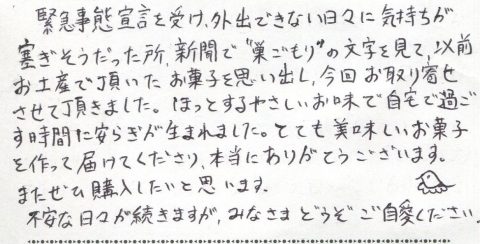 緊急事態宣言を受け、外出できない日々に気持ちが
塞ぎそうだった所、新聞で"巣ごもり"の文字を見て、以前
お土産で頂いたお菓子を思い出し、今回お取り寄せ
させて頂きました。ほっとするやさしいお味で自宅で過ご
す時間に安らぎが生まれました。とても美味しいお菓子
を作って届けてくださり、本当にありがとうございます。
またぜひ購入したいと思います。
不安な日々が続きますが、みなさまどうぞご自愛ください。